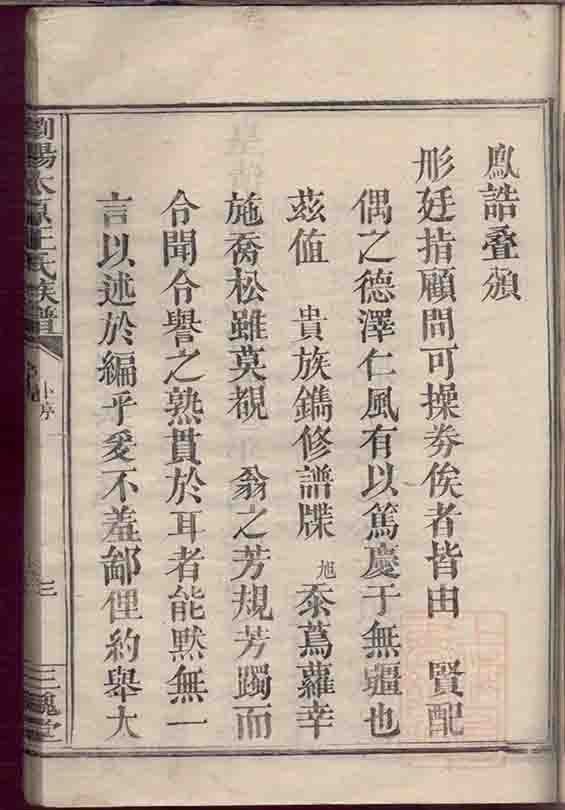 鳳誥叠頒
形廷指顧問可操券俟者皆由 賢配
偶之德澤仁風有以篤慶于無疆也
茲值 貴族鐫修譜牒 旭 忝蔦蘿幸
施喬松雖莫覩 翁之芳規芳躅而
令聞令譽之熟貫於耳者能默無一
言以述於編乎爰不羞鄙俚約舉大
瀏陽 王氏族譜
卜序
三
三槐堂